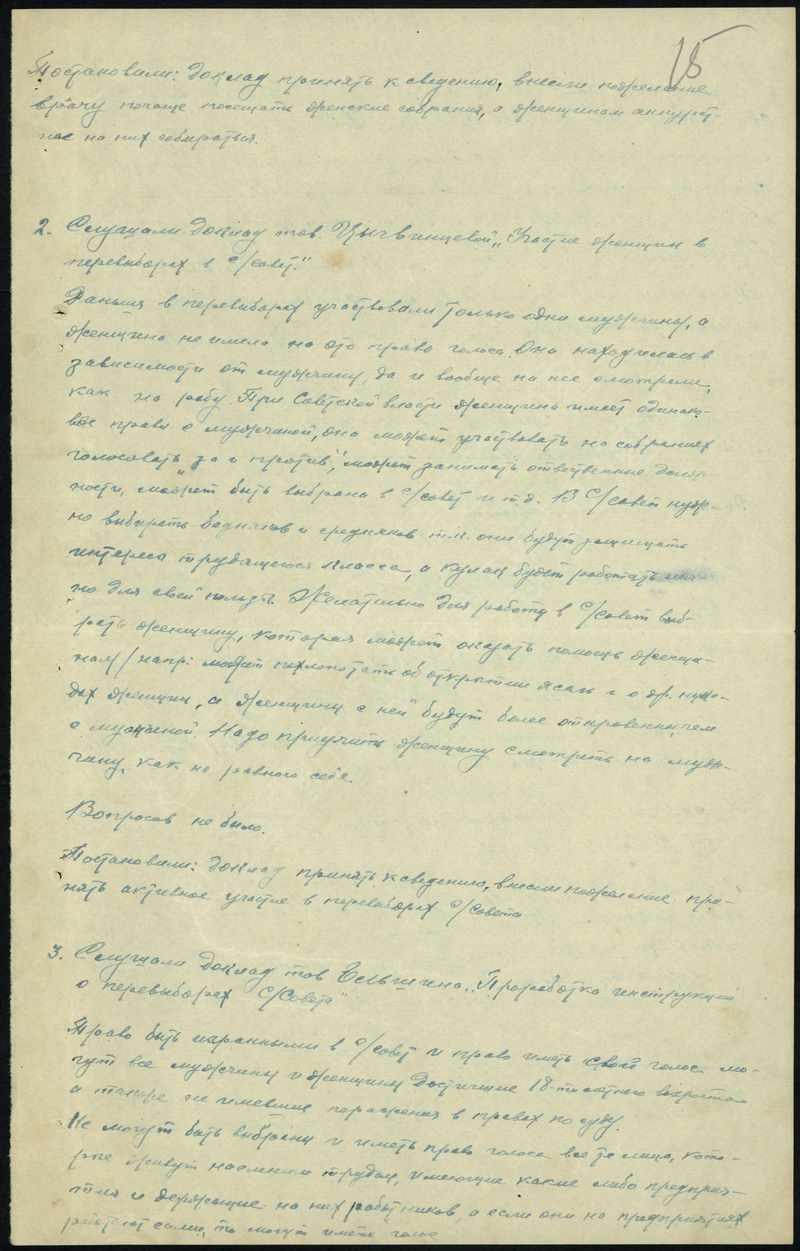 15
Постановили: Доклад принять к сведению, внесли пожелание
врачу почаще посещать женские собрания, а женщинам аккурат-
нее на них собираться.
2. Слушали доклад тов Цычвинцевой „Участие женщин в
перевыборах в с/совет."
Раньше в перевыборах участвовали только одни мужчины, а
женщина не имела на это право голоса. Она находилась в
зависимости от мужчины, да и вообще на нее смотрели,
как на рабу. При Советской власти женщина имеет одинако-
вые права с мужчиной, она может участвовать на собраниях
голосовать „за и против", может занимать ответственные долж-
ности, может быть выбрана в с/совет и т.д. В с/совет нуж-
но выбирать бедняков и середняков т.к. они будут защищать
интересы трудящегося класса, а кулак будет работать
но для своей пользы. Желательно для работы в с/совет выб-
рать женщину, которая может оказать помощь женщи-
нам / напр: может похлопотать об открытии яслей и о др. нуж-
дах женщин, а женщины с ней будут более откровенны, чем
с мужчиной. Надо приучить женщину смотреть на муж-
чину, как на равного себе.
Вопросов не было.
Постановили: Доклад принять к сведению, внесли пожелание при-
нять активное участие в перевыборах с/совета
3. Слушали доклад тов „Проработка инструкций
о перевыборах с/совета"
Право быть избранными в с/совет и право иметь свой голос мо-
гут все мужчины и женщины достигшие 18-ти летнего возраста
а также не имевшие поражения в правах по суду.
Не могут быть выбраны и иметь право голоса все те лица, кото-
рые живут наемным трудом, имеющие какие либо предприя-
тия и держащие на них работников, а если они на предприятиях
работают сами, то могут иметь голос